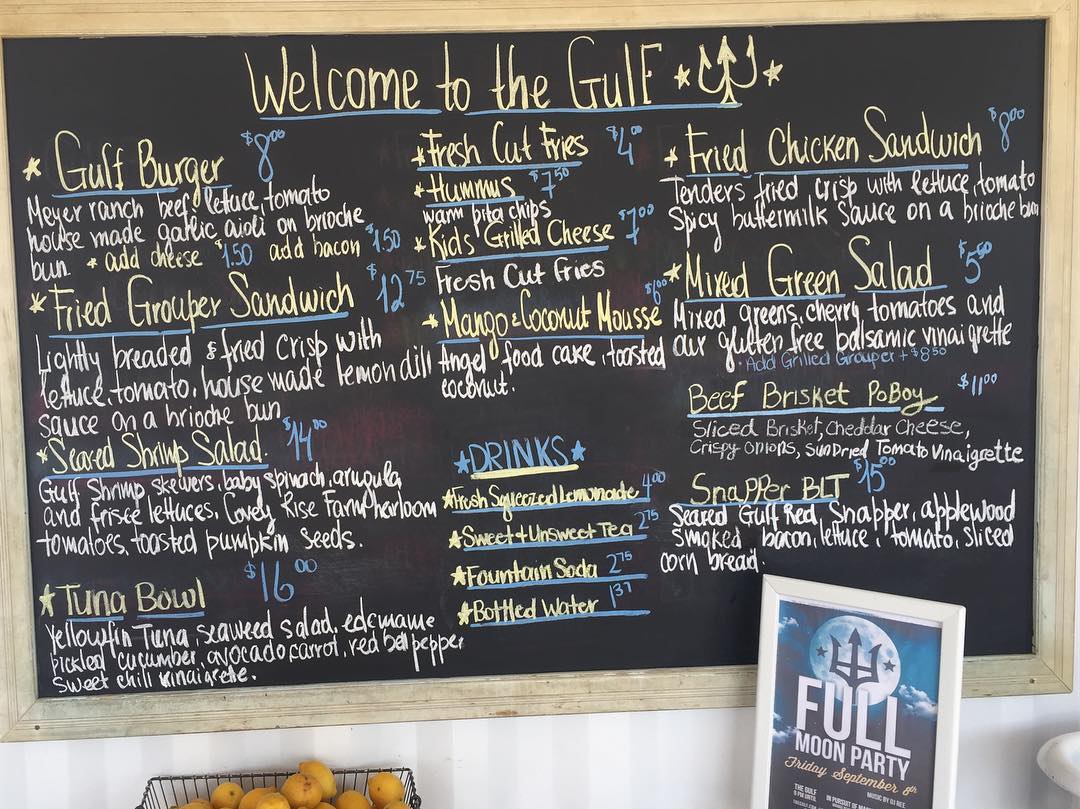 Welcome to the Gulf
Gulf Burger $8.00
Meyer ranch beef, lettuce, tomato
house made garlic aioli on brioche
bun * add cheese $1.50 add bacon $1.50
Fried Grouper Sandwich $12.75
Lightly breaded & fried crisp with
lettuce, tomato, house made lemon dill
sauce on a brioche bun
Seared Shrimp Salad. $14.00
Gulf Shrimp skewers, baby spinach, arugula
and frisee lettuces, Covey Rise Farm heirloom
tomatoes, toasted pumpkin seeds.
Tuna Bowl $16.00
Yellowfin Tuna, seaweed salad, edemame
pickled cucumber, avocado, carrot, red bell pepper
sweet chili vinaigrette.
Fresh Cut Fries $4
Hummus $7.50
warm pita chips
Kids Grilled Cheese $7.00
Fresh Cut Fries
Mango & Coconut Mousse $6.00
Angel food cake, toasted
coconut.
DRINKS
Fresh Squeezed Lemonade 4.00
Sweet + Unsweet Tea 2.75
Fountain Soda 2.75
Bottled Water 1.37
Fried Chicken Sandwich $8.00
Tenders fried crisp with lettuce, tomato
Spicy buttermilk sauce on a brioche bun
Mixed Green Salad $5.50
Mixed greens, cherry tomatoes and
our glutten free balsamic vinaigrette
· Add Grilled Grouper + $8.50
Beef Brisket PoBoy $11.00
Sliced Brisket, Cheddar Cheese,
Crispy Onions, Sun Dried Tomato Vinaigrette
Snapper BLT $15.00
Seared Gulf Red Snapper, applewood
smoked bacon, lettuce, tomato, sliced
corn bread.
FULL
MOON PARTY
Friday September 8th
THE GULF
IN PURSUIT OF
MUSIC BY DJ REE